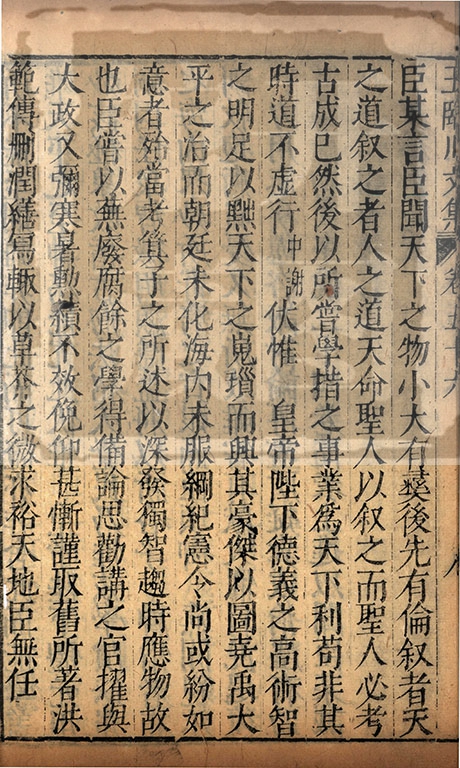 王臨川文集 卷五十六 八
臣某言臣聞天下之物小大有彝後先有倫叙者天
之道叙之者人之道天命聖人以叙之而聖人必考
古成已然後以所嘗學措之事業爲天下利苟非其
時道不虛行中謝伏惟 皇帝陛下德義之高術智
之明足以黜天下之嵬瑣而興其豪傑以圖堯禹大
平之治而朝廷未化海内未服綱紀憲令尚或紛如
意者殆當考箕子之所述以深發獨智趨時應物故
也臣嘗以無廢腐餘之學得備論思勸講之官擢與
大政又彌寒暑勲績不效俛仰甚慚謹取舊所著洪
範傳刪潤繕寫輙以草芥之微求裕天地臣無任